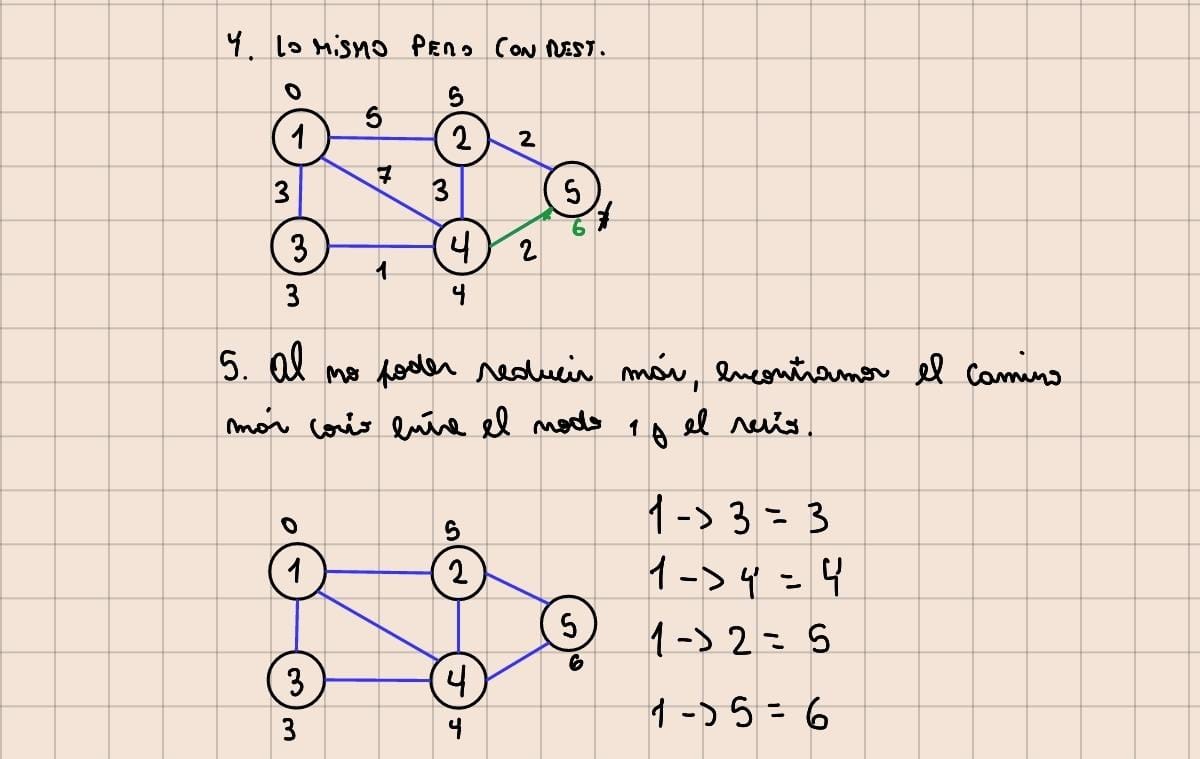 4. LO MISMO PERO CON REST.
0 5
1 5 2 2
3 7 3 5
6 7
3 1 4 2
3 4
5. Al no poder reducir más, encontramos el camino
más corto entre el nodo 1 y el resto.
0 5
1 2
5
6
3 4
3 4
1 -> 3 = 3
1 -> 4 = 4
1 -> 2 = 5
1 -> 5 = 6